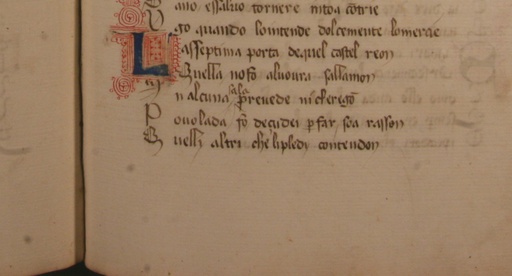 ano essaluo tornere in toa cōtrie
go quando lointende dolcemente lomerae
Lasseptima porta dequel castel reon
Quella no fo aluoura sallamon
In alcuna sala prevede ni clergō
Povolada fo de cidei p far soa rasson
Quelli altri che li pledi contendon